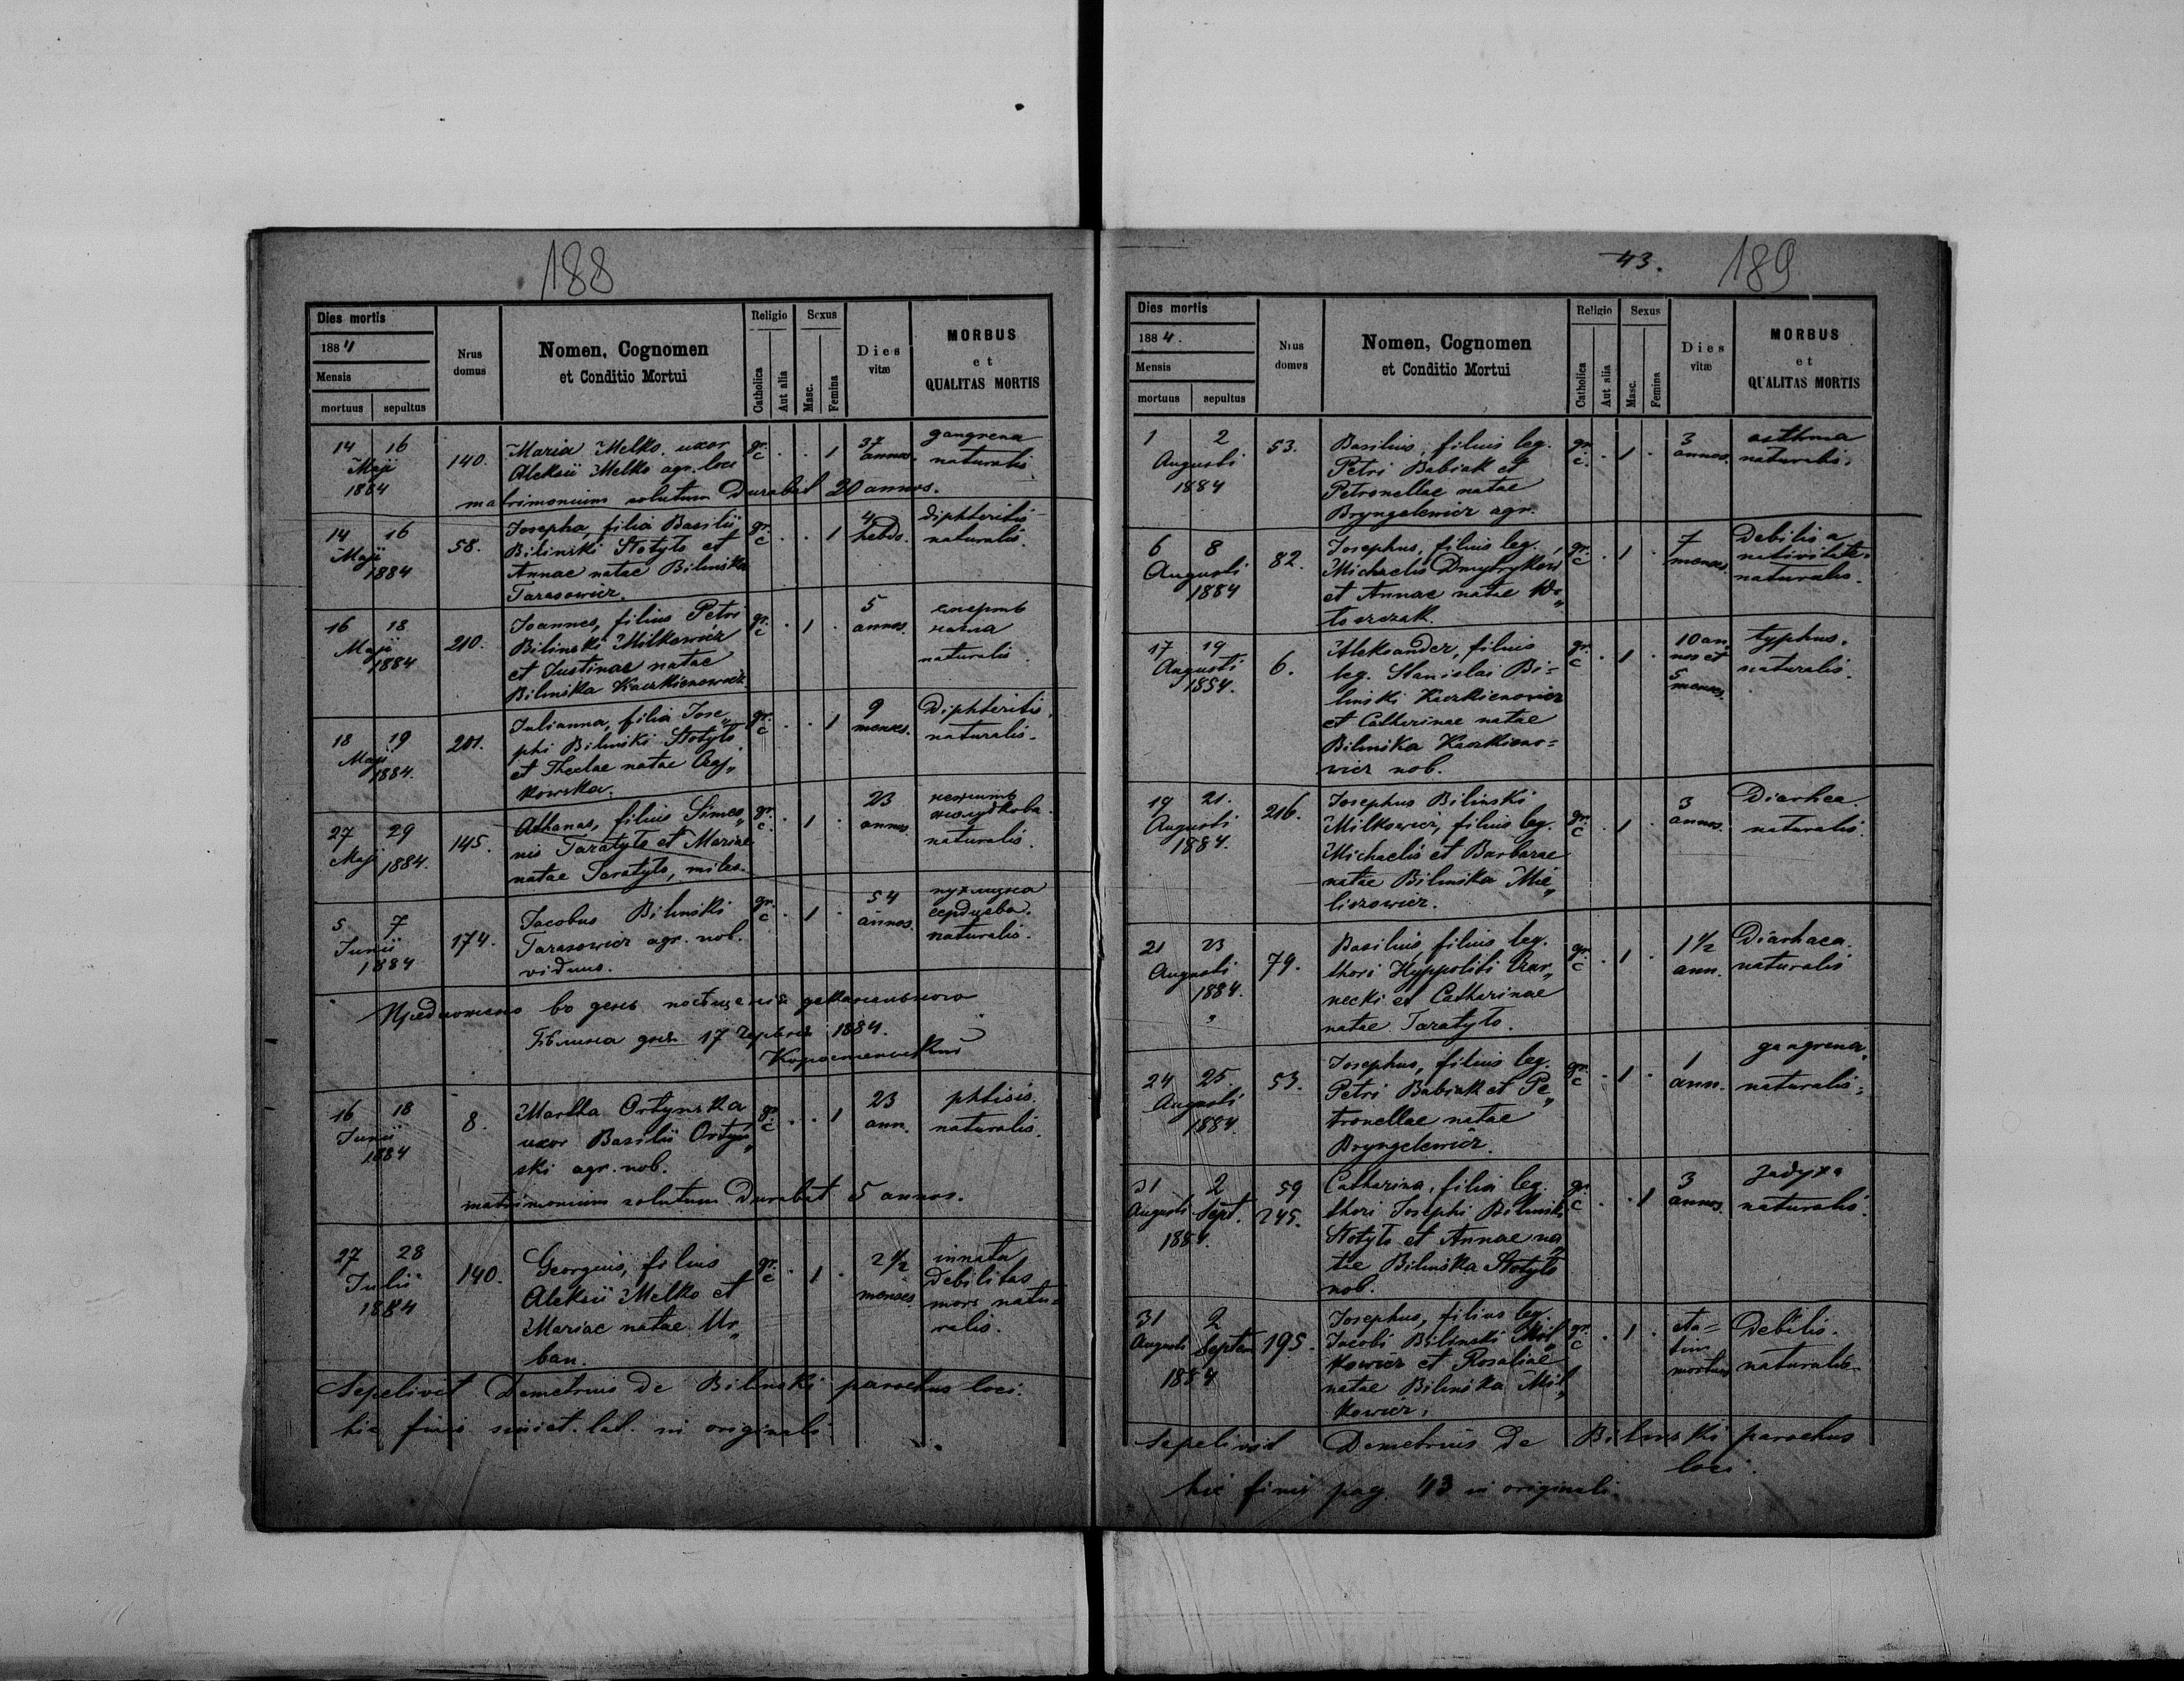 188
Dies mortis
1884
Mensis
mortuus sepultus
Nrus domus
Nomen, Cognomen
et Conditio Mortui
Religio
Catholica
Aut alia
Sexus
Masc.
Femina
Dies
vitæ
MORBUS
et
QUALITAS MORTIS
14 16 140. Maria Melko, uxor gr. c . . 1 37 gangrena
Maji Aleksii Melko agr. loci annos. naturalis
1884 matrimonium solutum Durabat 20 annos.
14 16 58. Josepha, filia Basilii gr. c . . 1 4 diphteritis
Maji Bilinski Stotyto et hebdo. naturalis.
1884 Annae natae Bilinska
Tarasowicz.
16 18 210. Joannes, filius Petri gr. c . 1 . 5
Maji Bilinski Milkowicz annos.
1884 et Justinae natae naturalis.
Bilinska Kaczkienowicz.
18 19 201. Julianna, filia Jose„ gr. c . . 1 9 Diphteritis.
Maji phi Bilinski Stotyto menses. naturalis.
1884. et Theclae natae Czaj„
kowska.
27 29 145. Athanas, filius Simeo„ gr. c . 1 . 23
Maji nis Taratyto et Mariae annos.
1884. natae Taratyto, miles. naturalis.
5 7 174. Jacobus Bilinski gr. c . 1 . 54
Junii Tarasowicz agr. nob. annos. сердцева.
1884 viduus. naturalis.
Предложено во день посѣщенія деканального
Бѣлина дня 17 Червня 1884.
16 18 8. Martha Ortynska gr. c . . 1 23 phtisis.
Junii uxor Basilii Ortyn„ ann. naturalis.
1884 ski agr. nob.
matrimonium solutum Durabat 5 annos.
27 28 140. Georgius, filius gr. c . 1 . 2 1/2 innata
Julii Aleksii Melko et menses. Debilitas
1884 Mariae natae Ur„ mors natu=
ban. ralis.
Sepelivit Demetrius de Bilinski parochus loci.
hic finis in originali
43. 189
Dies mortis
1884.
Mensis
mortuus sepultus
Nrus domus
Nomen, Cognomen
et Conditio Mortui
Religio
Catholica
Aut alia
Sexus
Masc.
Femina
Dies
vitæ
MORBUS
et
QUALITAS MORTIS
1 2 53. Basilius, filius leg. gr. c. . 1 . 3 asthma
Augusti Petri Babiak et annos. naturalis.
1884 Petronellae natae
Bryngelewicz agr.
6 8 82. Josephus, filius leg. gr. c . 1 . 7 Debilis a
Augusti Michaelis Dmytrykow menses. nativitate=
1884 et Annae natae Wo„ naturalis.
toszczak.
17 19 6. Aleksander, filius gr. c . 1 . 10 an„ typhus.
Augusti leg. Stanislai Bi= nos et naturalis.
1884. linski Kaczkienowicz 5 menses.
et Catharinae natae
Bilinska Kaczkieno=
wicz nob.
19 21. 216. Josephus Bilinski gr. c . 1 3 Diarhea.
Augusti Milkowicz, filius leg. annos. naturalis.
1884. Michaelis et Barbarae
natae Bilinska Mie„
liczowicz.
21 23 79. Basilius, filius leg. gr. c . 1 . 1 1/2 Diarhaea.
Augusti thori Hyppoliti Czar„ ann. naturalis
1884. necki et Catharinae
natae Taratyto.
24 25. 53. Josephus, filius leg. gr. c . 1 . 1 gangrena.
Augusti Petri Babiak et Pe„ ann. naturalis=
1884 tronellae natae
Bryngelewicz.
31 2 59 Catharina, filia leg. gr. c . . 1 3
Augusti Sept. 245. thori Josephi Bilinski annos. naturalis.
1884. Stotyto et Annae na
tae Bilinska Stotyto
nob.
31 2 195. Josephus, filius leg. gr. c . 1 . sta= Debilis.
Augusti Septem Jacobi Bilinski Mil„ tim
1884 kowicz et Rosaliae mortuus naturalis
natae Bilinska Mil„
kowicz.
Sepelivit Demetrius de Bilinski parochus
loci.
hic finis pag. 43 in originali.